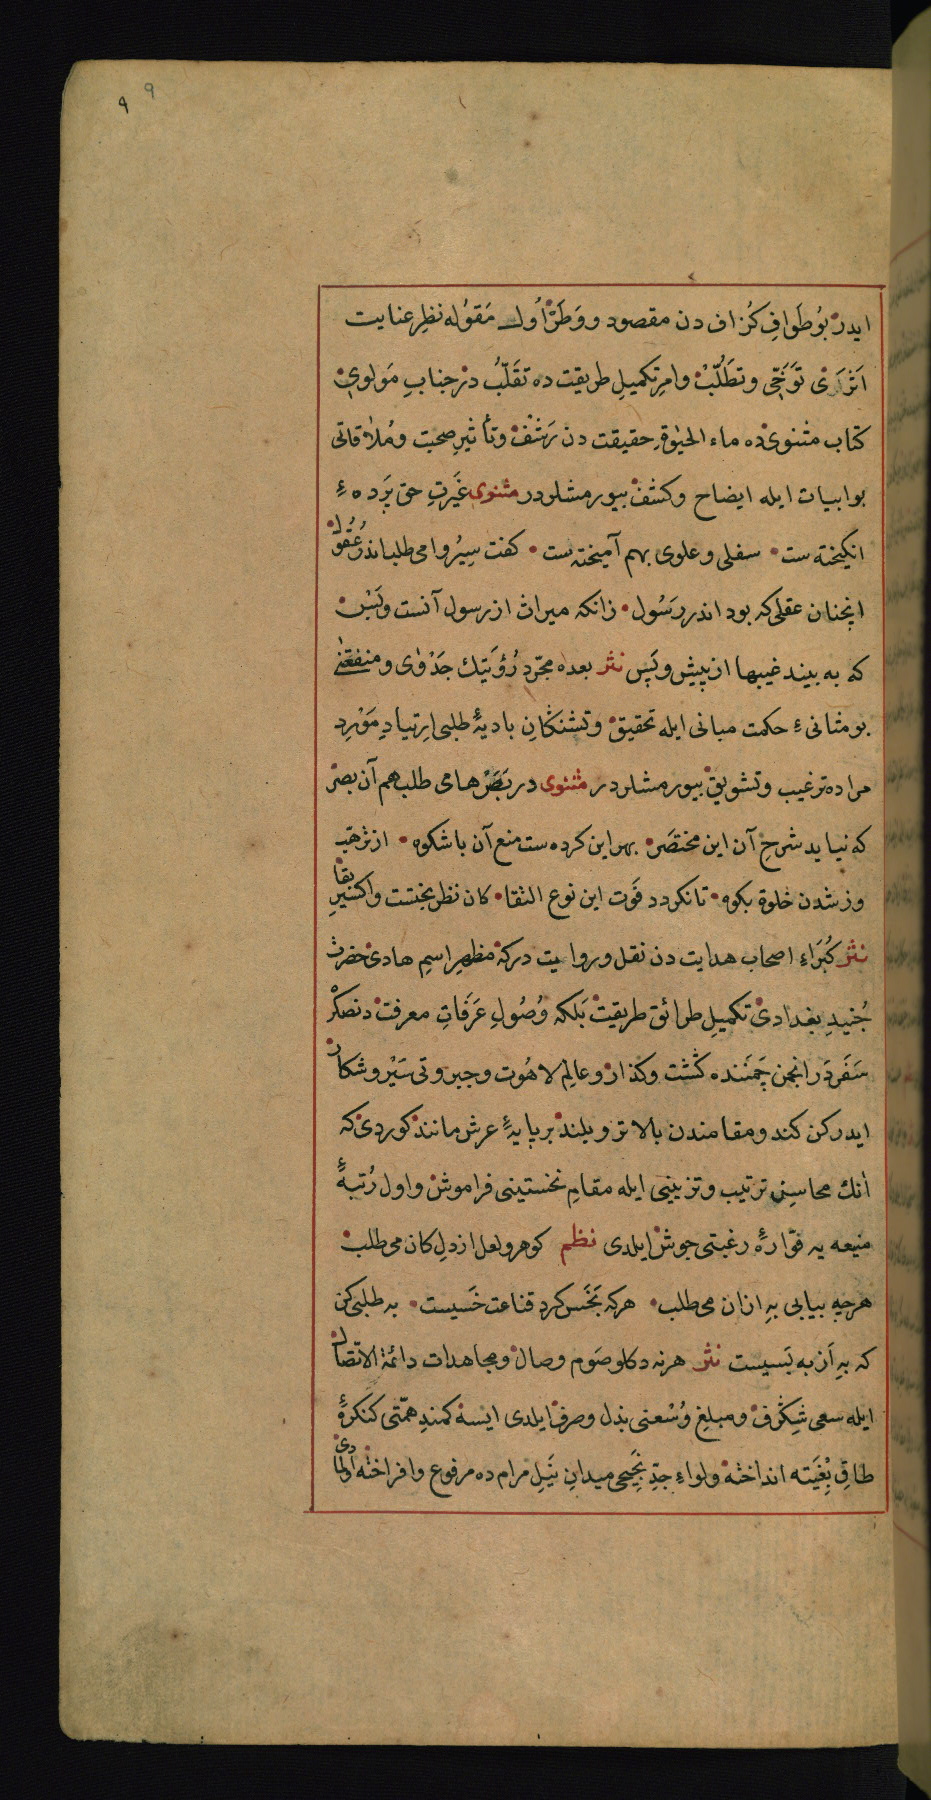 ٩ ٩
ایدر بُو طَوافِ كُزاف دن مقصود و وَطَرْ اُول مَقوُله نظرِ عنایت
اَثَرلَرْی تَوَخّی و تطَلُّبْ وامرِ تكمیلِ طریقت ده تقَلّبُ در جنابِ مَولوی
كتاب مثنوی ده ماء الحیٰوةِ حقیقت دن تَرَشُّفْ وتأثیرِ صحبت ومُلاقاتی
بو ابیات ایله ایضاح وكشف بیورمشلردر مثنوی غَیَرتِ حق پَرده ءِ
انكیخته ست سفلی وعلوی بهم آمیخته ست كفت سِیرُوا می طلب اندر عُقُول
انچنان عقلی كه بود اندر رَسُول زانكه میراث از رسول آنست وبَسْ
كه به بیند غیبها از پیش و پَس نثر بعده مجرّد رُؤیَتیك جَدْوٰی ومنفعَتنی
بو مثانیءِ حكمت مبانی ایله تحقیق وتشنكانِ بادیهٔ طلبی اِرتیادِ مَوْرِدِ
مراده ترغیب وتشویق بیورمشلردر مثنوی در بَصَرْها می طلب هم آن بصر
كه نیاید شرحِ آن این مختصَر بهر این كرده ست منع آن باشكوه از ترهّب
وز شدن خلوة بكوه تا نكردد فَوت این نوع التقا كان نظر بختست واكسیرِ بقا
نثر كُبَراءِ اصحاب هدایت دن نقل وروایت دركه مظهرِ اسمِ هادی حضرت
جُنیدِ بغدادی تكمیلِ طرائقِ طریقت بَلكه وُصُولِ عَرَفاتِ معرفت دنصكْر
سَفَر دَر انجمن چَمَننده كَشت وكذار وعالِم لاهُوت وجبروتی سَیْر وشكار
ایدركن كندو مقامندن بالاتر وبلند بر پایهٔ عرش مانند كوردی كه
اَنك محاسِنِ ترتیب وتزیینی ایله مقامِ نخستینی فراموش واول رُتبهٔ
منیعه یه فوّارهٔ رغبتی جوش ایلدی نظم كوهر ولعل از دلِ كان می طلب
هرچه بیابی بهِ ازان می طلب هركه بَخَس كرد قناعت خَسیست به طلبی كن
كه بهِ اَز به بَسیست نثر هر نه دكلو صَوم وصال ومجاهدات دائمة الاتّصال
ایله سعی شِكَرف ومبلغِ وُسْعنی بذل وصرف ایلدی ایسه كمندِ همّتی كنكرهٔ
طاقِ بِغَیَته انداخته ولواءِ جدِّ نَجِیحی میدانِ نَیلِ مرام ده مرفوع وافراخته اولمادی